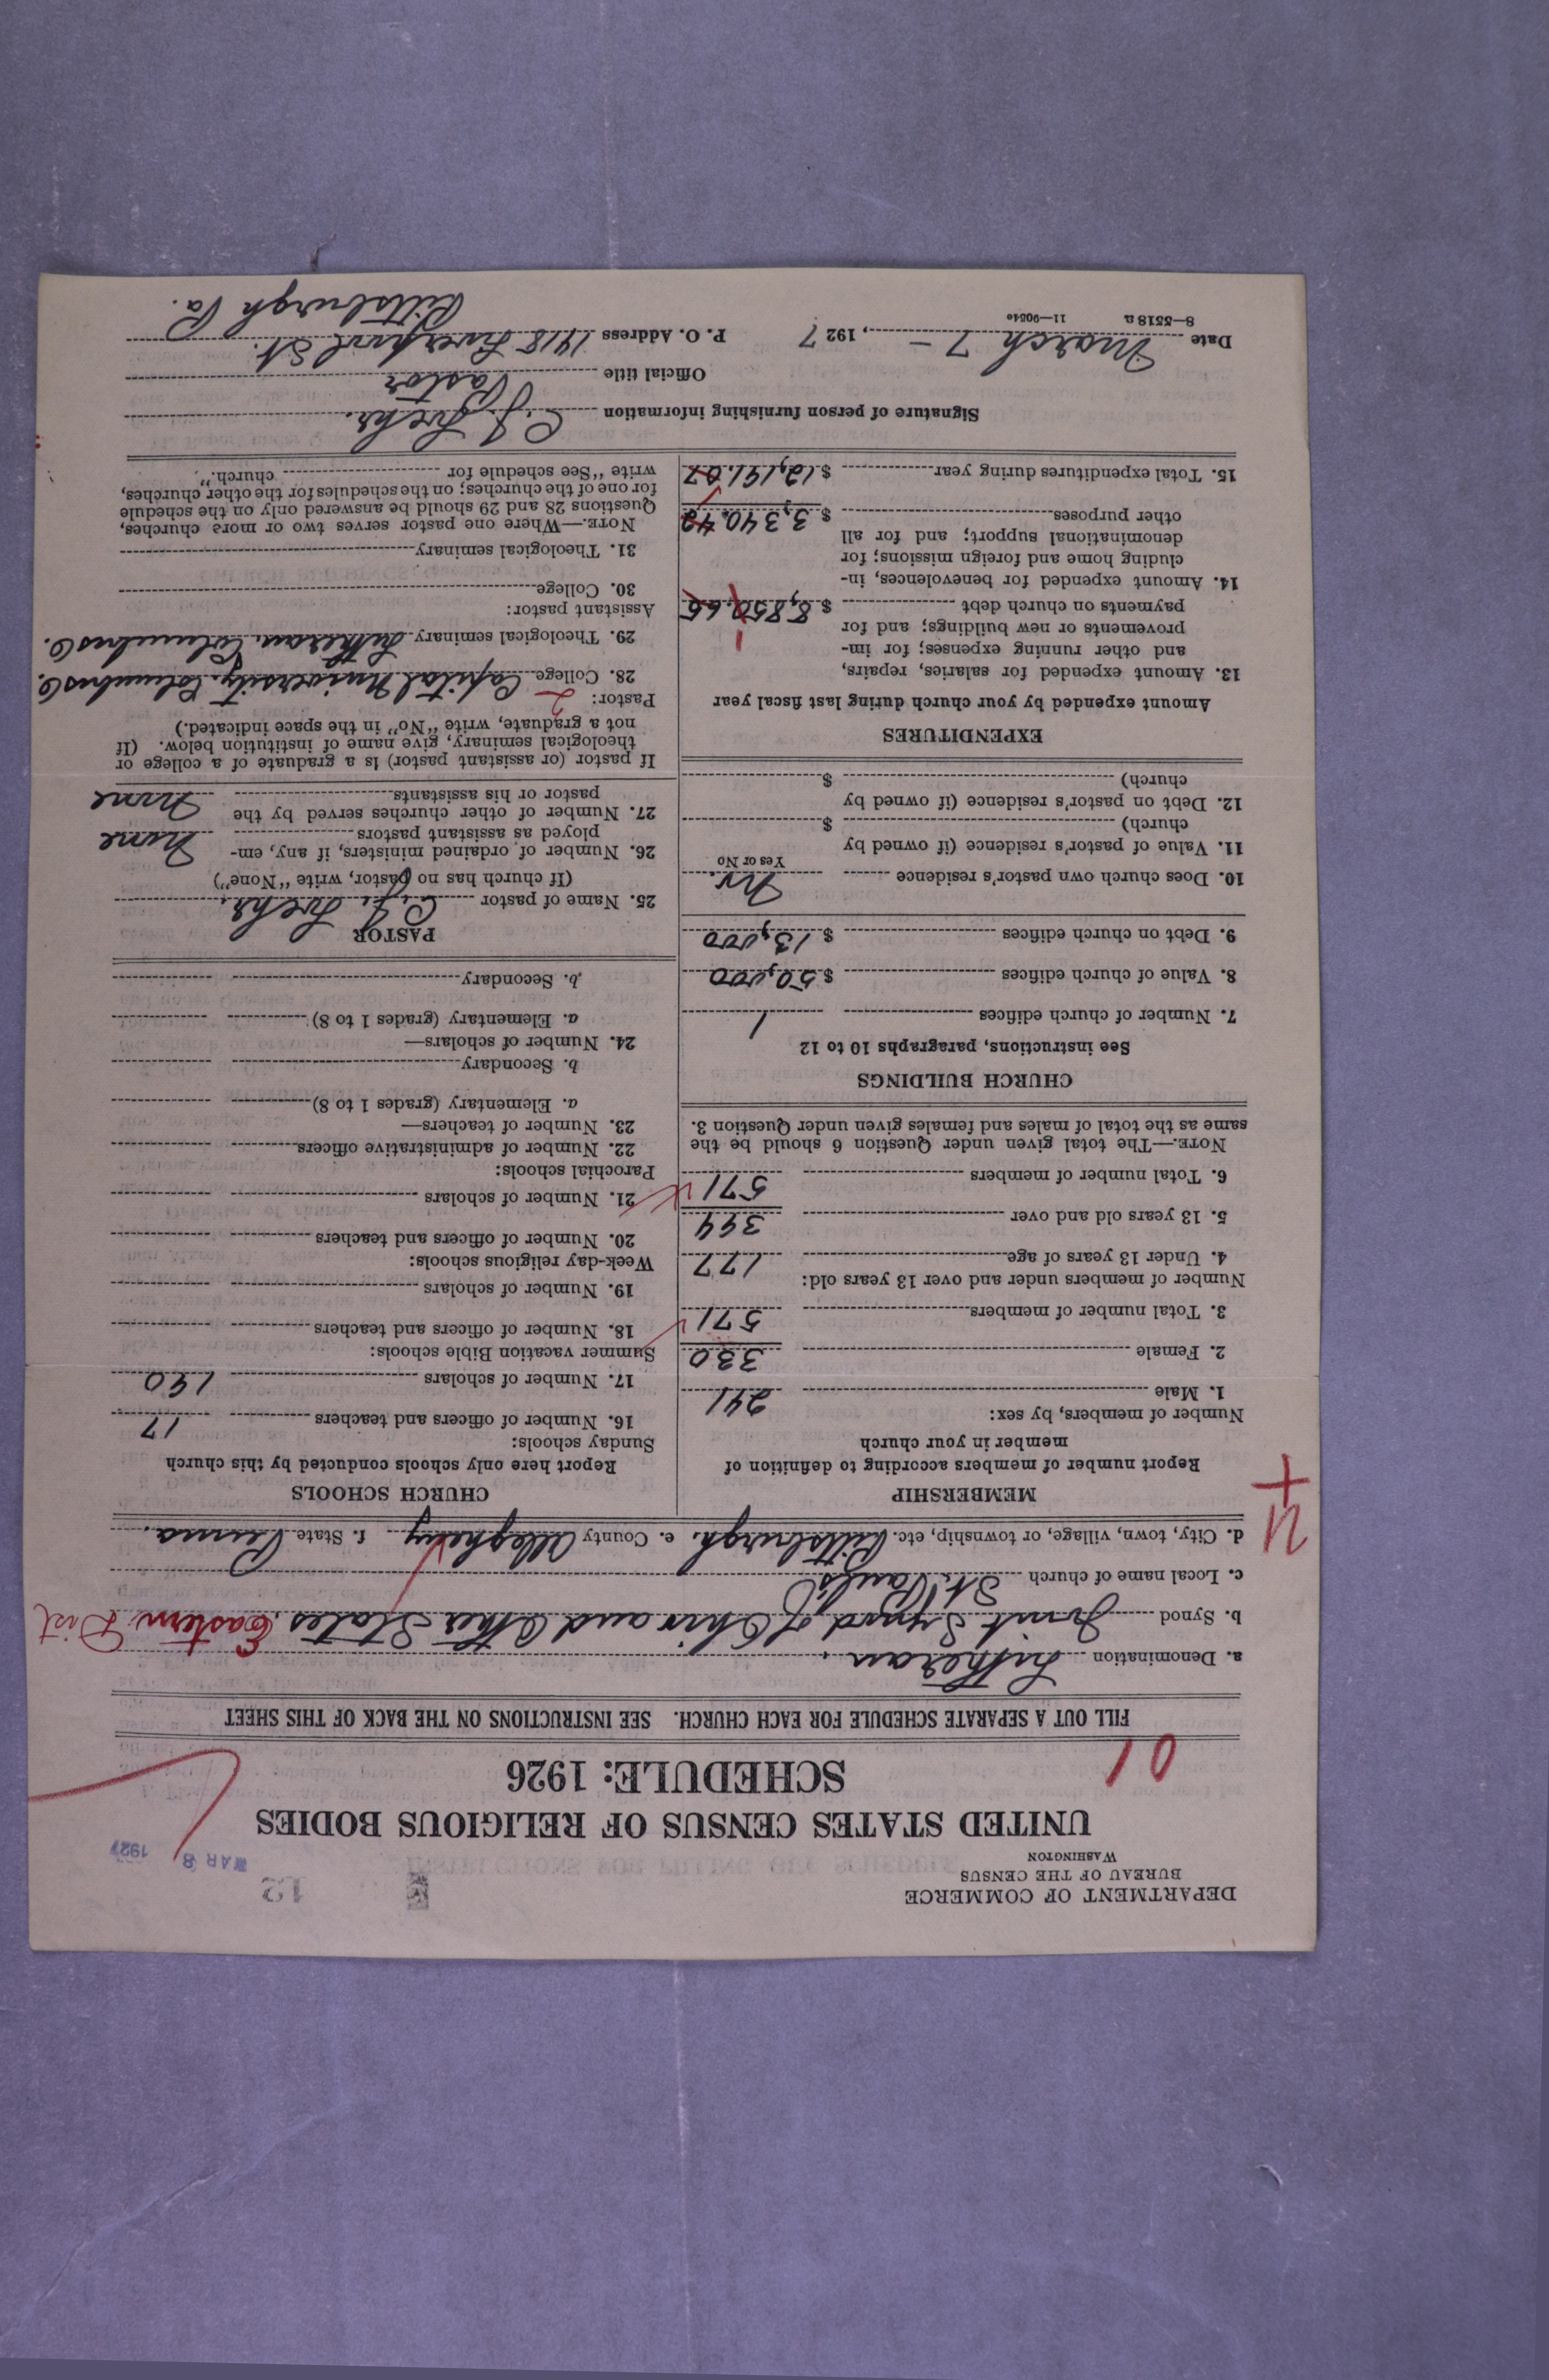 DEPARTMENT OF COMMERCE
BUREAU OF THE CENSUS
WASHINGTON
12
MAR 8 1927
UNITED STATES CENSUS OF RELIGIOUS BODIES
SCHEDULE: 1926
01
FILL OUT A SEPARATE SCHEDULE FOR EACH CHURCH. SEE INSTRUCTIONS ON THE BACK OF THIS SHEET
a. Denomination Lutheran.
b. Synod Joint Synod of Ohio and Other States. Eastern Dist
c. Local name of church St. Paul's
d. City, town, village, or township, etc. Pittsburgh. e. County Allegheny f. State Penna.
MEMBERSHIP
Report number of members according to definition of
member in your church
Number of members, by sex:
1. Male 241
2. Female 330
3. Total number of members 571
Number of members under and over 13 years old:
4. Under 13 years of age 177
5. 13 years old and over 394
6. Total number of members 571
NOTE.—The total given under Question 6 should be the
same as the total of males and females given under Question 3.
CHURCH BUILDINGS
See instructions, paragraphs 10 to 12
7. Number of church edifices 1
8. Value of church edifices $ 50,000
9. Debt on church edifices $ 13,000
10. Does church own pastor's residence No.
Yes or No
11. Value of pastor's residence (if owned by
church) $
12. Debt on pastor's residence (if owned by
church) $
EXPENDITURES
Amount expended by your church during last fiscal year
13. Amount expended for salaries, repairs,
and other running expenses; for im-
provements or new buildings; and for
payments on church debt $ 8,850.65
1
14. Amount expended for benevolences, in-
cluding home and foreign missions; for
denominational support; and for all
other purposes $ 3,340.42
15. Total expenditures during year $ 12,191.07
CHURCH SCHOOLS
Report here only schools conducted by this church
Sunday schools:
16. Number of officers and teachers 17
17. Number of scholars 190
Summer vacation Bible schools:
18. Number of officers and teachers
19. Number of scholars
Week-day religious schools:
20. Number of officers and teachers
21. Number of scholars
Parochial schools:
22. Number of administrative officers
23. Number of teachers—
a. Elementary (grades 1 to 8)
b. Secondary
24. Number of scholars—
a. Elementary (grades 1 to 8)
b. Secondary
PASTOR
25. Name of pastor C. J.
(If church has no pastor, write "None")
26. Number of ordained ministers, if any, em-
ployed as assistant pastors None
27. Number of other churches served by the
pastor or his assistants None
If pastor (or assistant pastor) is a graduate of a college or
theological seminary, give name of institution below. (If
not a graduate, write "No" in the space indicated.)
Pastor: 2
28. College Capital University, Columbus O.
29. Theological seminary Lutheran, Columbus O.
Assistant pastor:
30. College
31. Theological seminary
NOTE.—Where one pastor serves two or more churches,
Questions 28 and 29 should be answered only on the schedule
for one of the churches; on the schedules for the other churches,
write "See schedule for church."
Signature of person furnishing information C. J.
Official title Pastor
Date March 7 -, 1927 P. O. Address 1418 Liverpool St.
Pittsburgh Pa.
8—5518 a 11—9054c